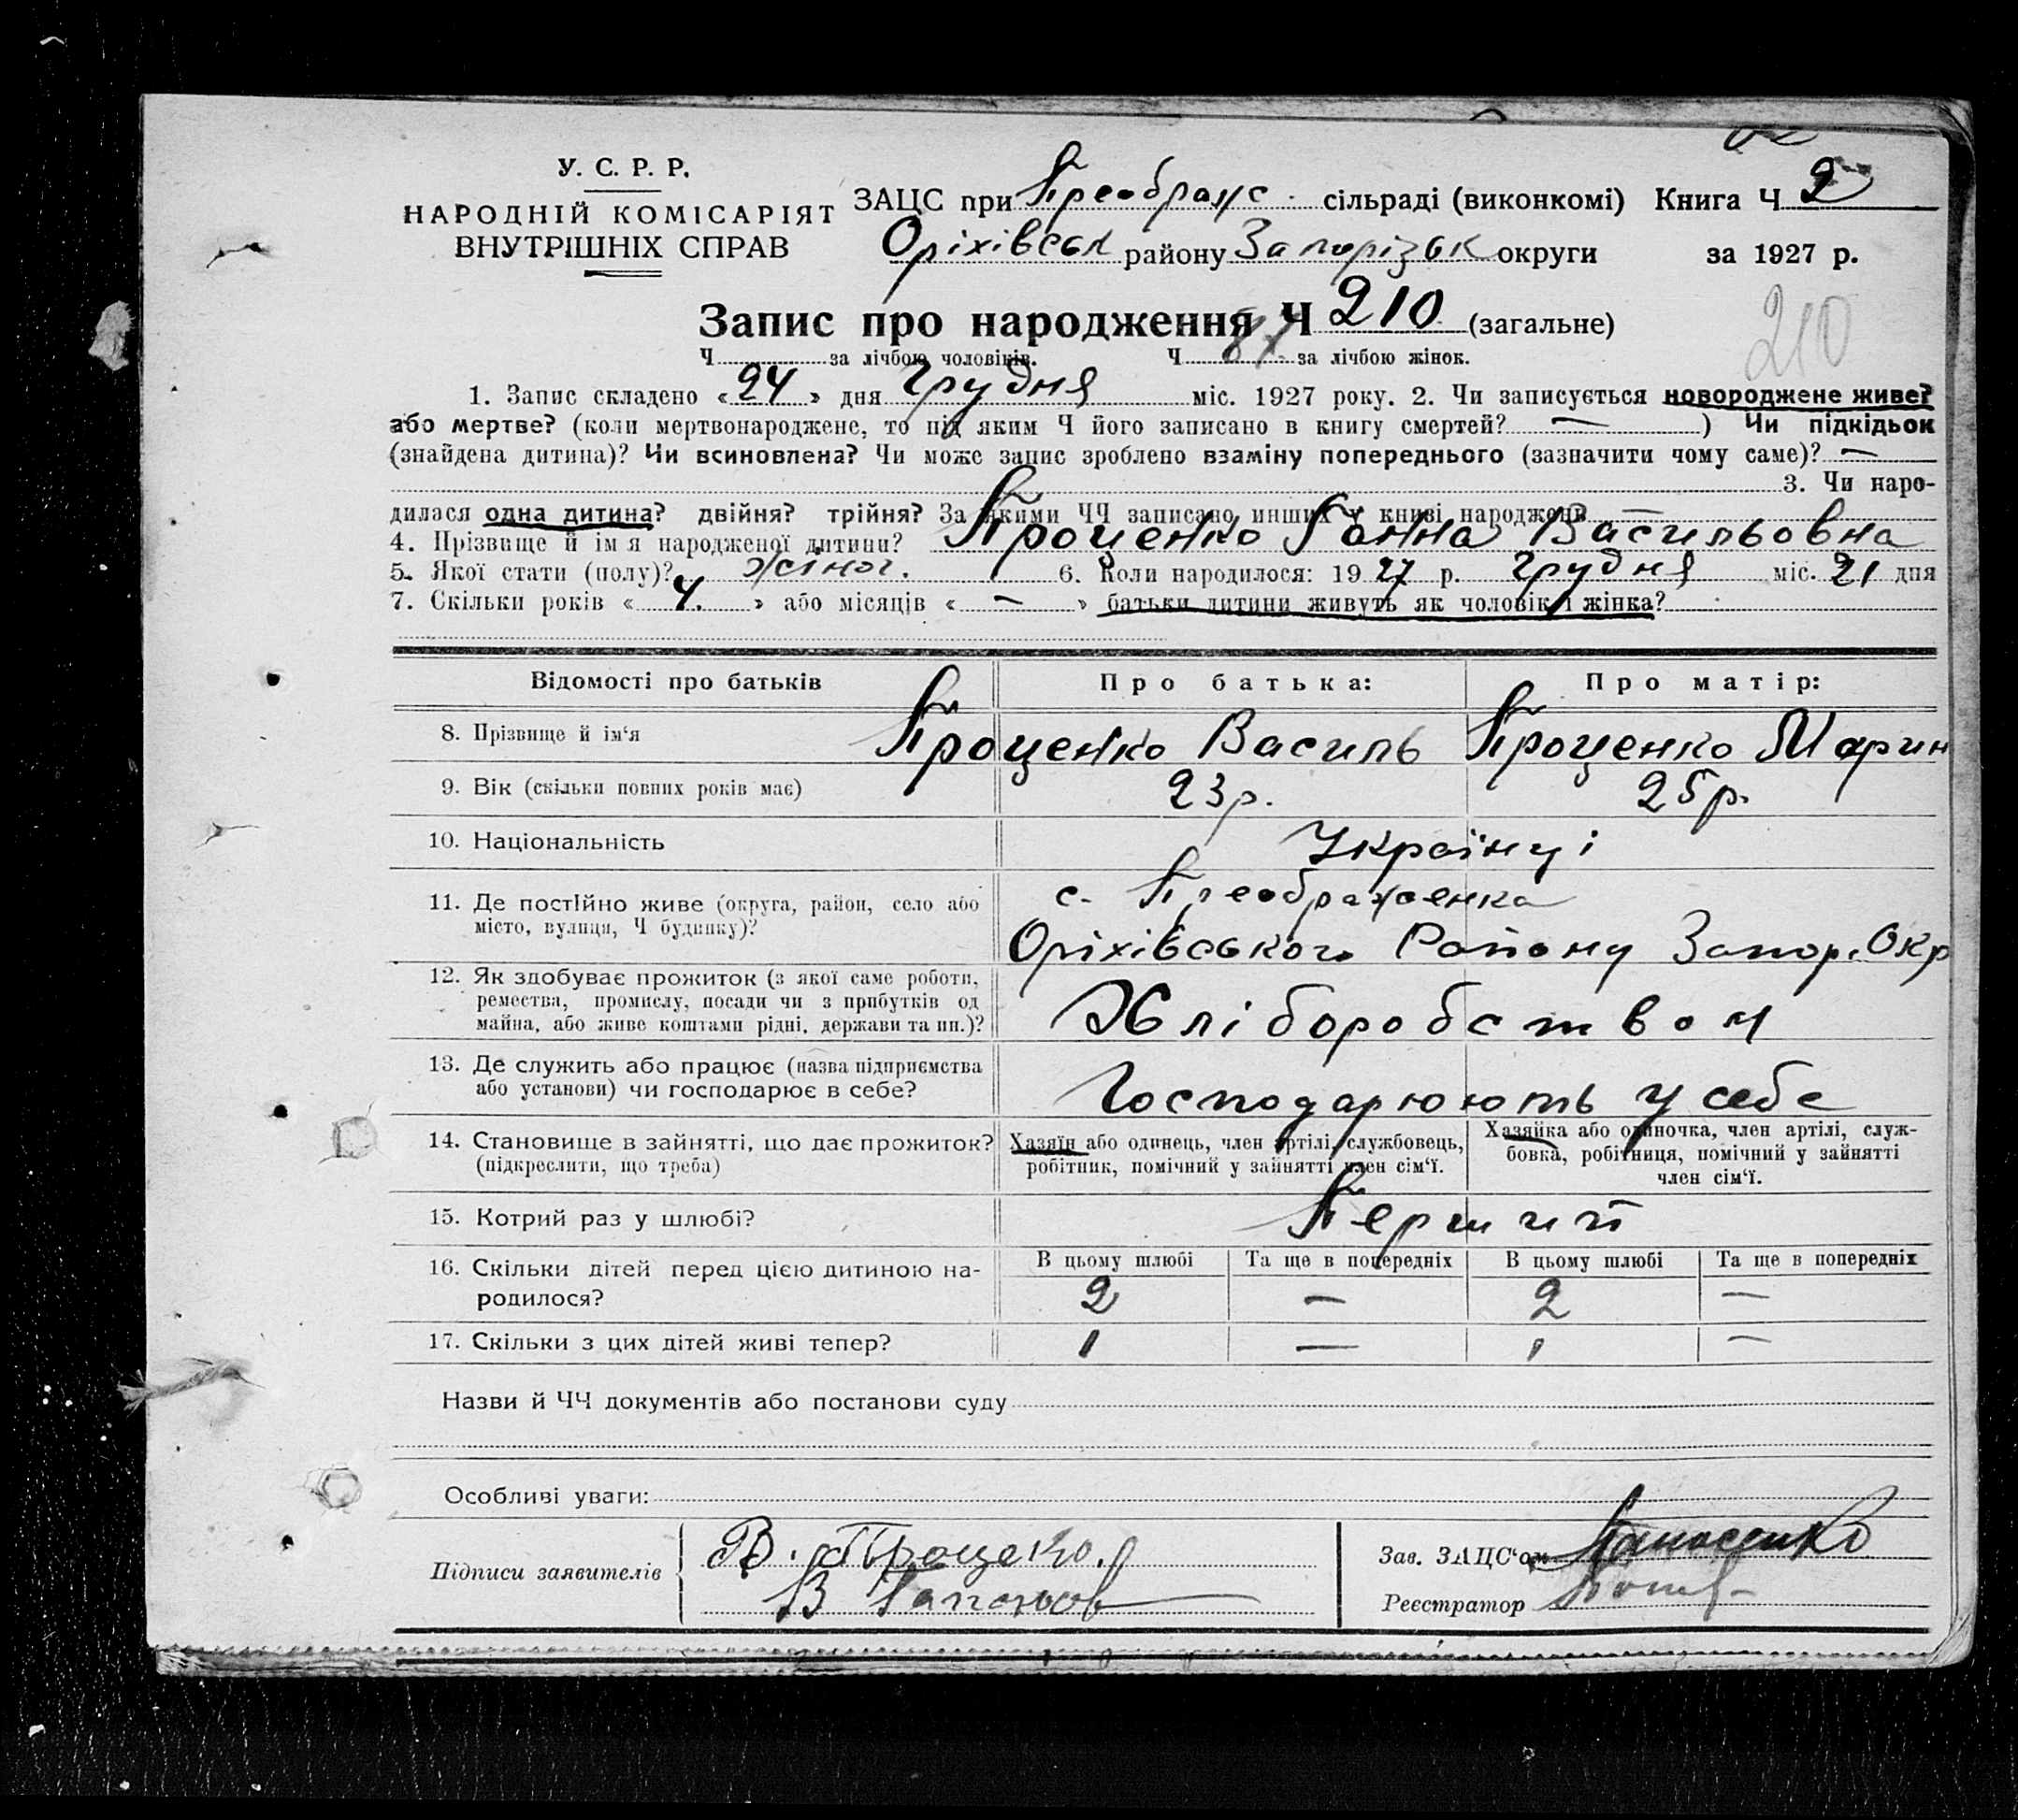 У. С. Р. Р.
НАРОДНІЙ КОМІСАРІЯТ
ВНУТРІШНІХ СПРАВ
ЗАЦС при Преображ. сільраді (виконкомі) Книга Ч 2
Оріхівськ району Запорізьк округи за 1927 р.
Запис про народження Ч 210 (загальне)
210
Ч за лічбою чоловіків. Ч за лічбою жінок.
1. Запис складено « 24 » дня Грудня міс. 1927 року. 2. Чи записується новороджене живе?
або мертве? (коли мертвонароджене, то під яким Ч його записано в книгу смертей? — ) Чи підкідьок
(знайдена дитина)? Чи всиновлена? Чи може запис зроблено взаміну попереднього (зазначити чому саме)? —
3. Чи наро-
дилася одна дитина? двійня? трійня? За якими ЧЧ записано инших у книзі народжень —
4. Прізвище й ім я народженої дитини? Проценко Ганна Васильовна
5. Якої стати (полу)? жіноч. 6. Коли народилося: 1927 р. Грудня міс. 21 дня
7. Скільки років « 4. » або місяців « — » батьки дитини живуть як чоловік і жінка?
Відомості про батьків Про батька: Про матір:
8. Прізвище й ім‘я Проценко Василь Проценко Марин
9. Вік (скільки повних років має) 23р. 25р.
10. Національність Українці
11. Де постійно живе (округа, район, село або с. Преображенка
місто, вулиця, Ч будинку)? Оріхівського Району Запор. Окр
12. Як здобуває прожиток (з якої саме роботи,
ремества, промислу, посади чи з прибутків од
майна, або живе коштами рідні, держави та ин.)? Хліборобством
13. Де служить або працює (назва підприємства
або установи) чи господарює в себе? Господарюють у себе
14. Становище в зайнятті, що дає прожиток? Хазяїн або одинець, член артілі, службовець, Хазяйка або одиночка, член артілі, служ-
(підкреслити, що треба) робітник, помічний у зайнятті член сім‘ї. бовка, робітниця, помічний у зайнятті
член сім‘ї.
15. Котрий раз у шлюбі? Перший
В цьому шлюбі Та ще в попередніх В цьому шлюбі Та ще в попередніх
16. Скільки дітей перед цією дитиною на-
родилося? 2 — 2 —
17. Скільки з цих дітей живі тепер? 1 — 1 —
Назви й ЧЧ документів або постанови суду
Особливі уваги:
Підписи заявителів В. Проценко.
Зав. ЗАЦС‘ом
Реєстратор